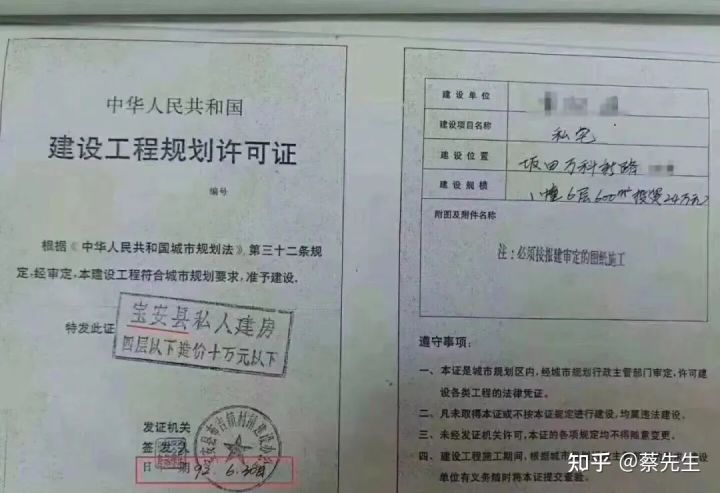 中华人民共和国
建设工程规划许可证
编号
根据《中华人民共和国城市规划法》第三十二条规
定,经审定,本建设工程符合城市规划要求,准予建设。
特发此证
宝安县私人建房
四层以下造价十万元以下
发证机关
签发人
日期 93 6.30
建设单位
建设项目名称 私宅
建设位置 坂田万科新路
建设规模 1幢6层600m² 投资24万元
附图及附件名称
注:必须按报建审定的图纸施工
遵守事项:
一、本证是城市规划区内,经城市规划行政主管部门审定,许可建
设各类工程的法律凭证。
二、凡未取得本证或不按本证规定进行建设,均属违法建设。
三、未经发证机关许可,本证的各项规定均不得随意变更。
四、建设工程施工期间,根据城
建设
单位有义务随时将本证提交查验。
知乎 @蔡先生